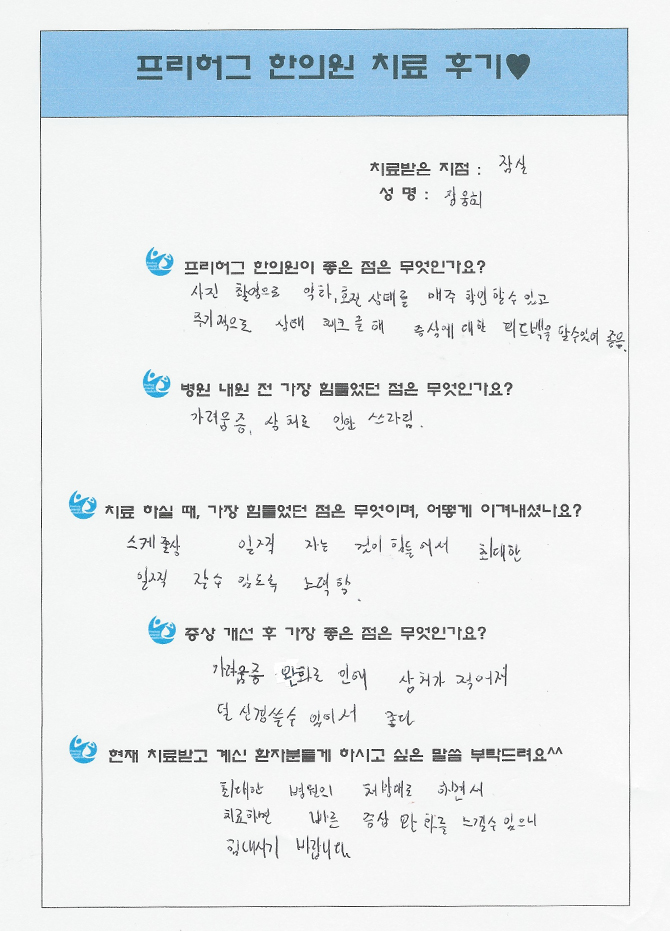 프리허그 한의원 치료 후기♥
치료받은 지점 : 잠실
성 명 : 장웅희
프리허그 한의원이 좋은 점은 무엇인가요?
사진 촬영으로 악화, 호전 상태를 매주 확인할 수 있고
주기적으로 상태 체크를 해 증상에 대한 피드백을 할수있어 좋음.
병원 내원 전 가장 힘들었던 점은 무엇인가요?
가려움증, 상처로 인한 쓰라림.
치료 하실 때, 가장 힘들었던 점은 무엇이며, 어떻게 이겨내셨나요?
스케줄상 일찍 자는 것이 힘들어서 최대한
일찍 잘 수 있도록 노력함.
증상 개선 후 가장 좋은 점은 무엇인가요?
가려움증 완화로 인해 상처가 적어져
덜 신경쓸 수 있어서 좋다
현재 치료받고 계신 환자분들게 하시고 싶은 말씀 부탁드려요^^
최대한 병원의 처방대로 하면서
치료하면 빠른 증상 완화를 느낄수 있으니
힘내시기 바랍니다.